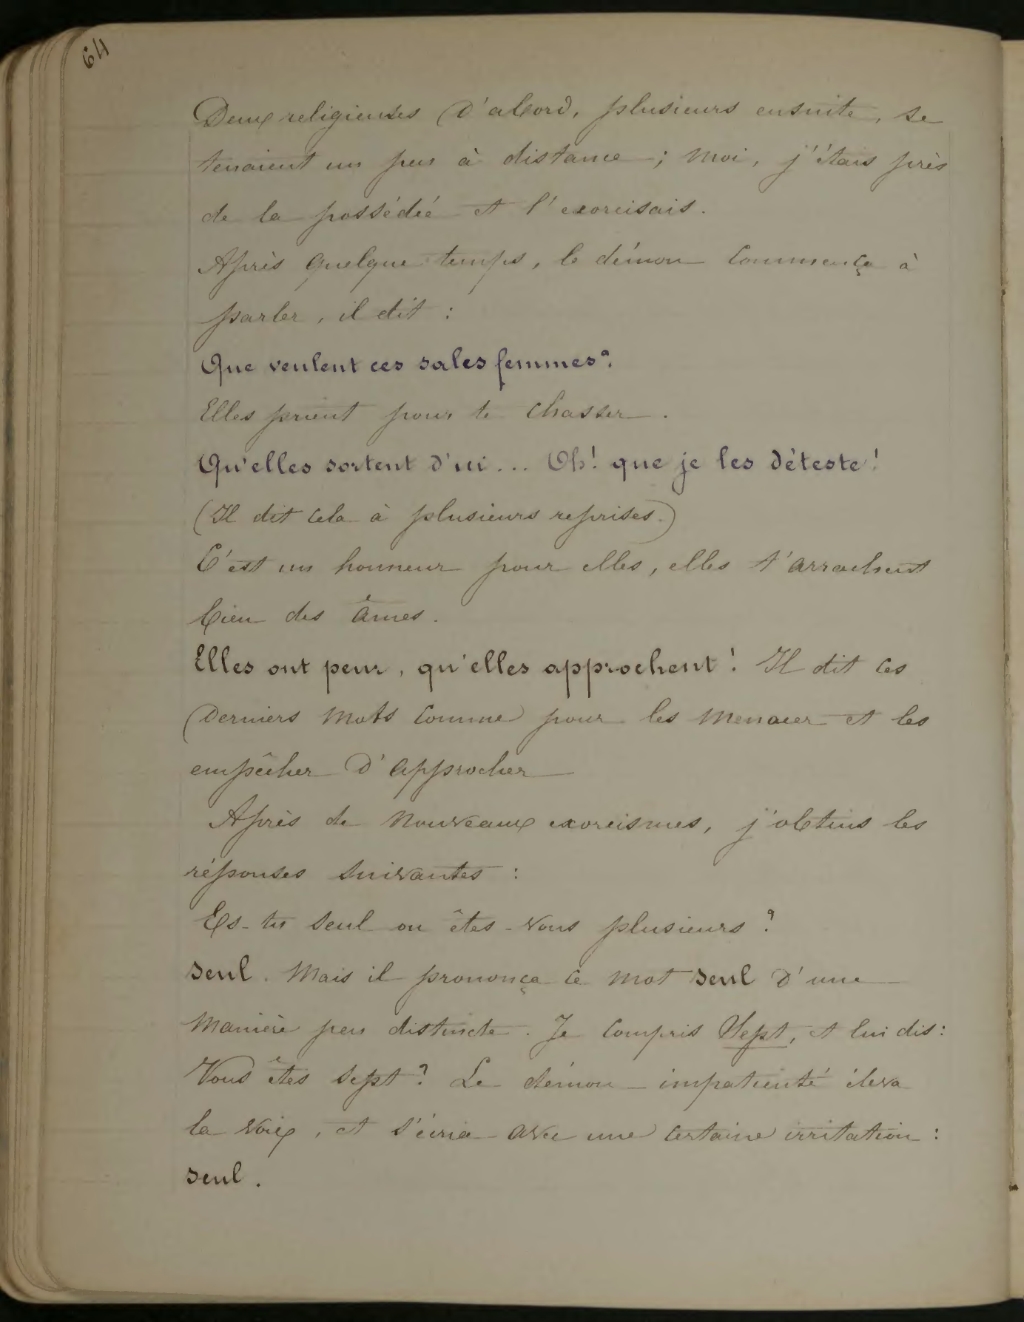 64
Deux religieuses d'abord, plusieurs ensuite, se
tenaient un peu à distance ; moi, j'étais près
de la possédée et l'exorcisais.
Après quelque temps, le démon commença à
parler, il dit :
Que veulent ces sales femmes ?
Elles prient pour te chasser.
Qu'elles sortent d'ici... Oh! que je les déteste !
(Il dit cela à plusieurs reprises.)
C'est un honneur pour elles, elles t'arrachent
bien des âmes.
Elles ont peur, qu'elles approchent ! Il dit ces
derniers mots comme pour les menacer et les
empêcher d'approcher
Après de nouveaux exorcismes, j'obtins les
réponses suivantes :
Es-tu seul ou êtes-vous plusieurs ?
Seul. Mais il prononça ce mot seul d'une
manière peu distincte. Je compris Sept, et lui dis :
Vous êtes sept ? Le démon impatienté éleva
la voix, et s'écria avec une certaine irritation :
Seul.